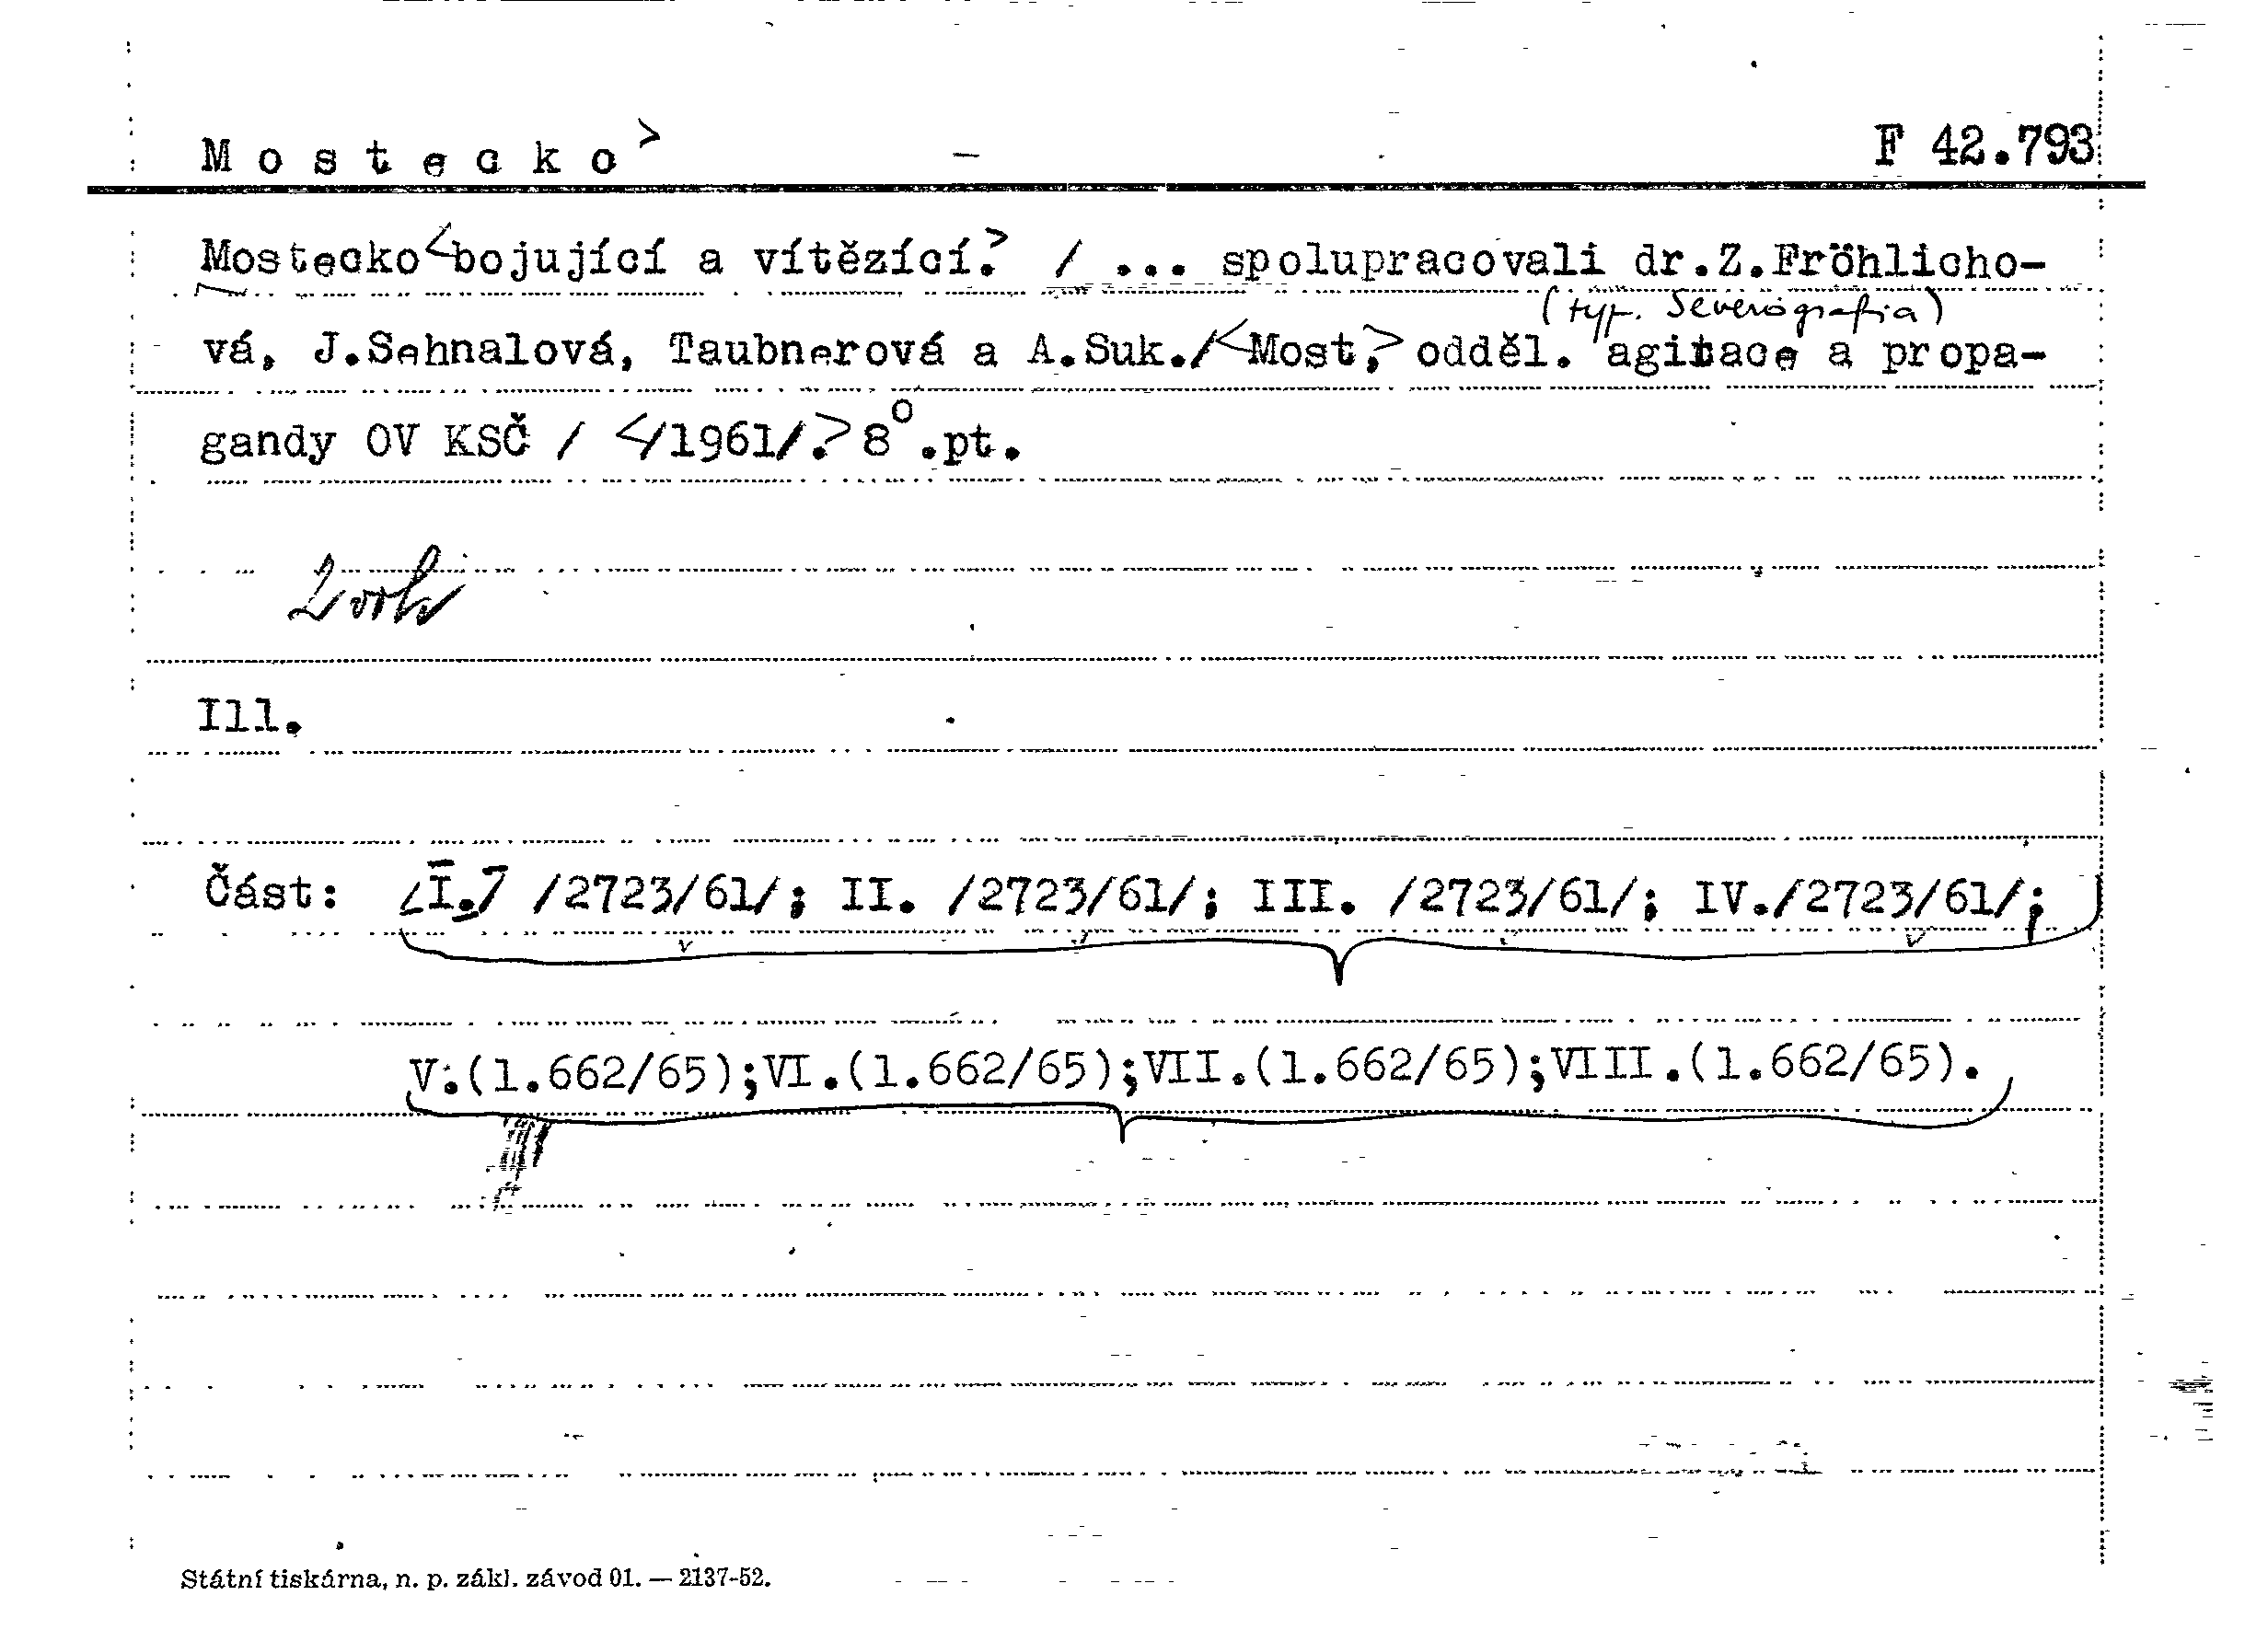 Mostecko> F 42.793
Mostecko <bojující a vítězící.> / ... spolupracovali dr.Z.Fröhlicho-
(typ. Severografia)
vá, J.Sehnalová, Taubnerová a A.Suk./ <Most,> odděl. agitace a propa-
gandy OV KSČ / </1961/.> 8°.pt.
2 voth
Ill.
Část: [I.] /2723/61/; II. /2723/61/; III. /2723/61/; IV./2723/61/;
V.(1.662/65);VI.(1.662/65);VII.(1.662/65);VIII.(1.662/65).
Státní tiskárna, n. p. zákl. závod 01. — 2137-52.